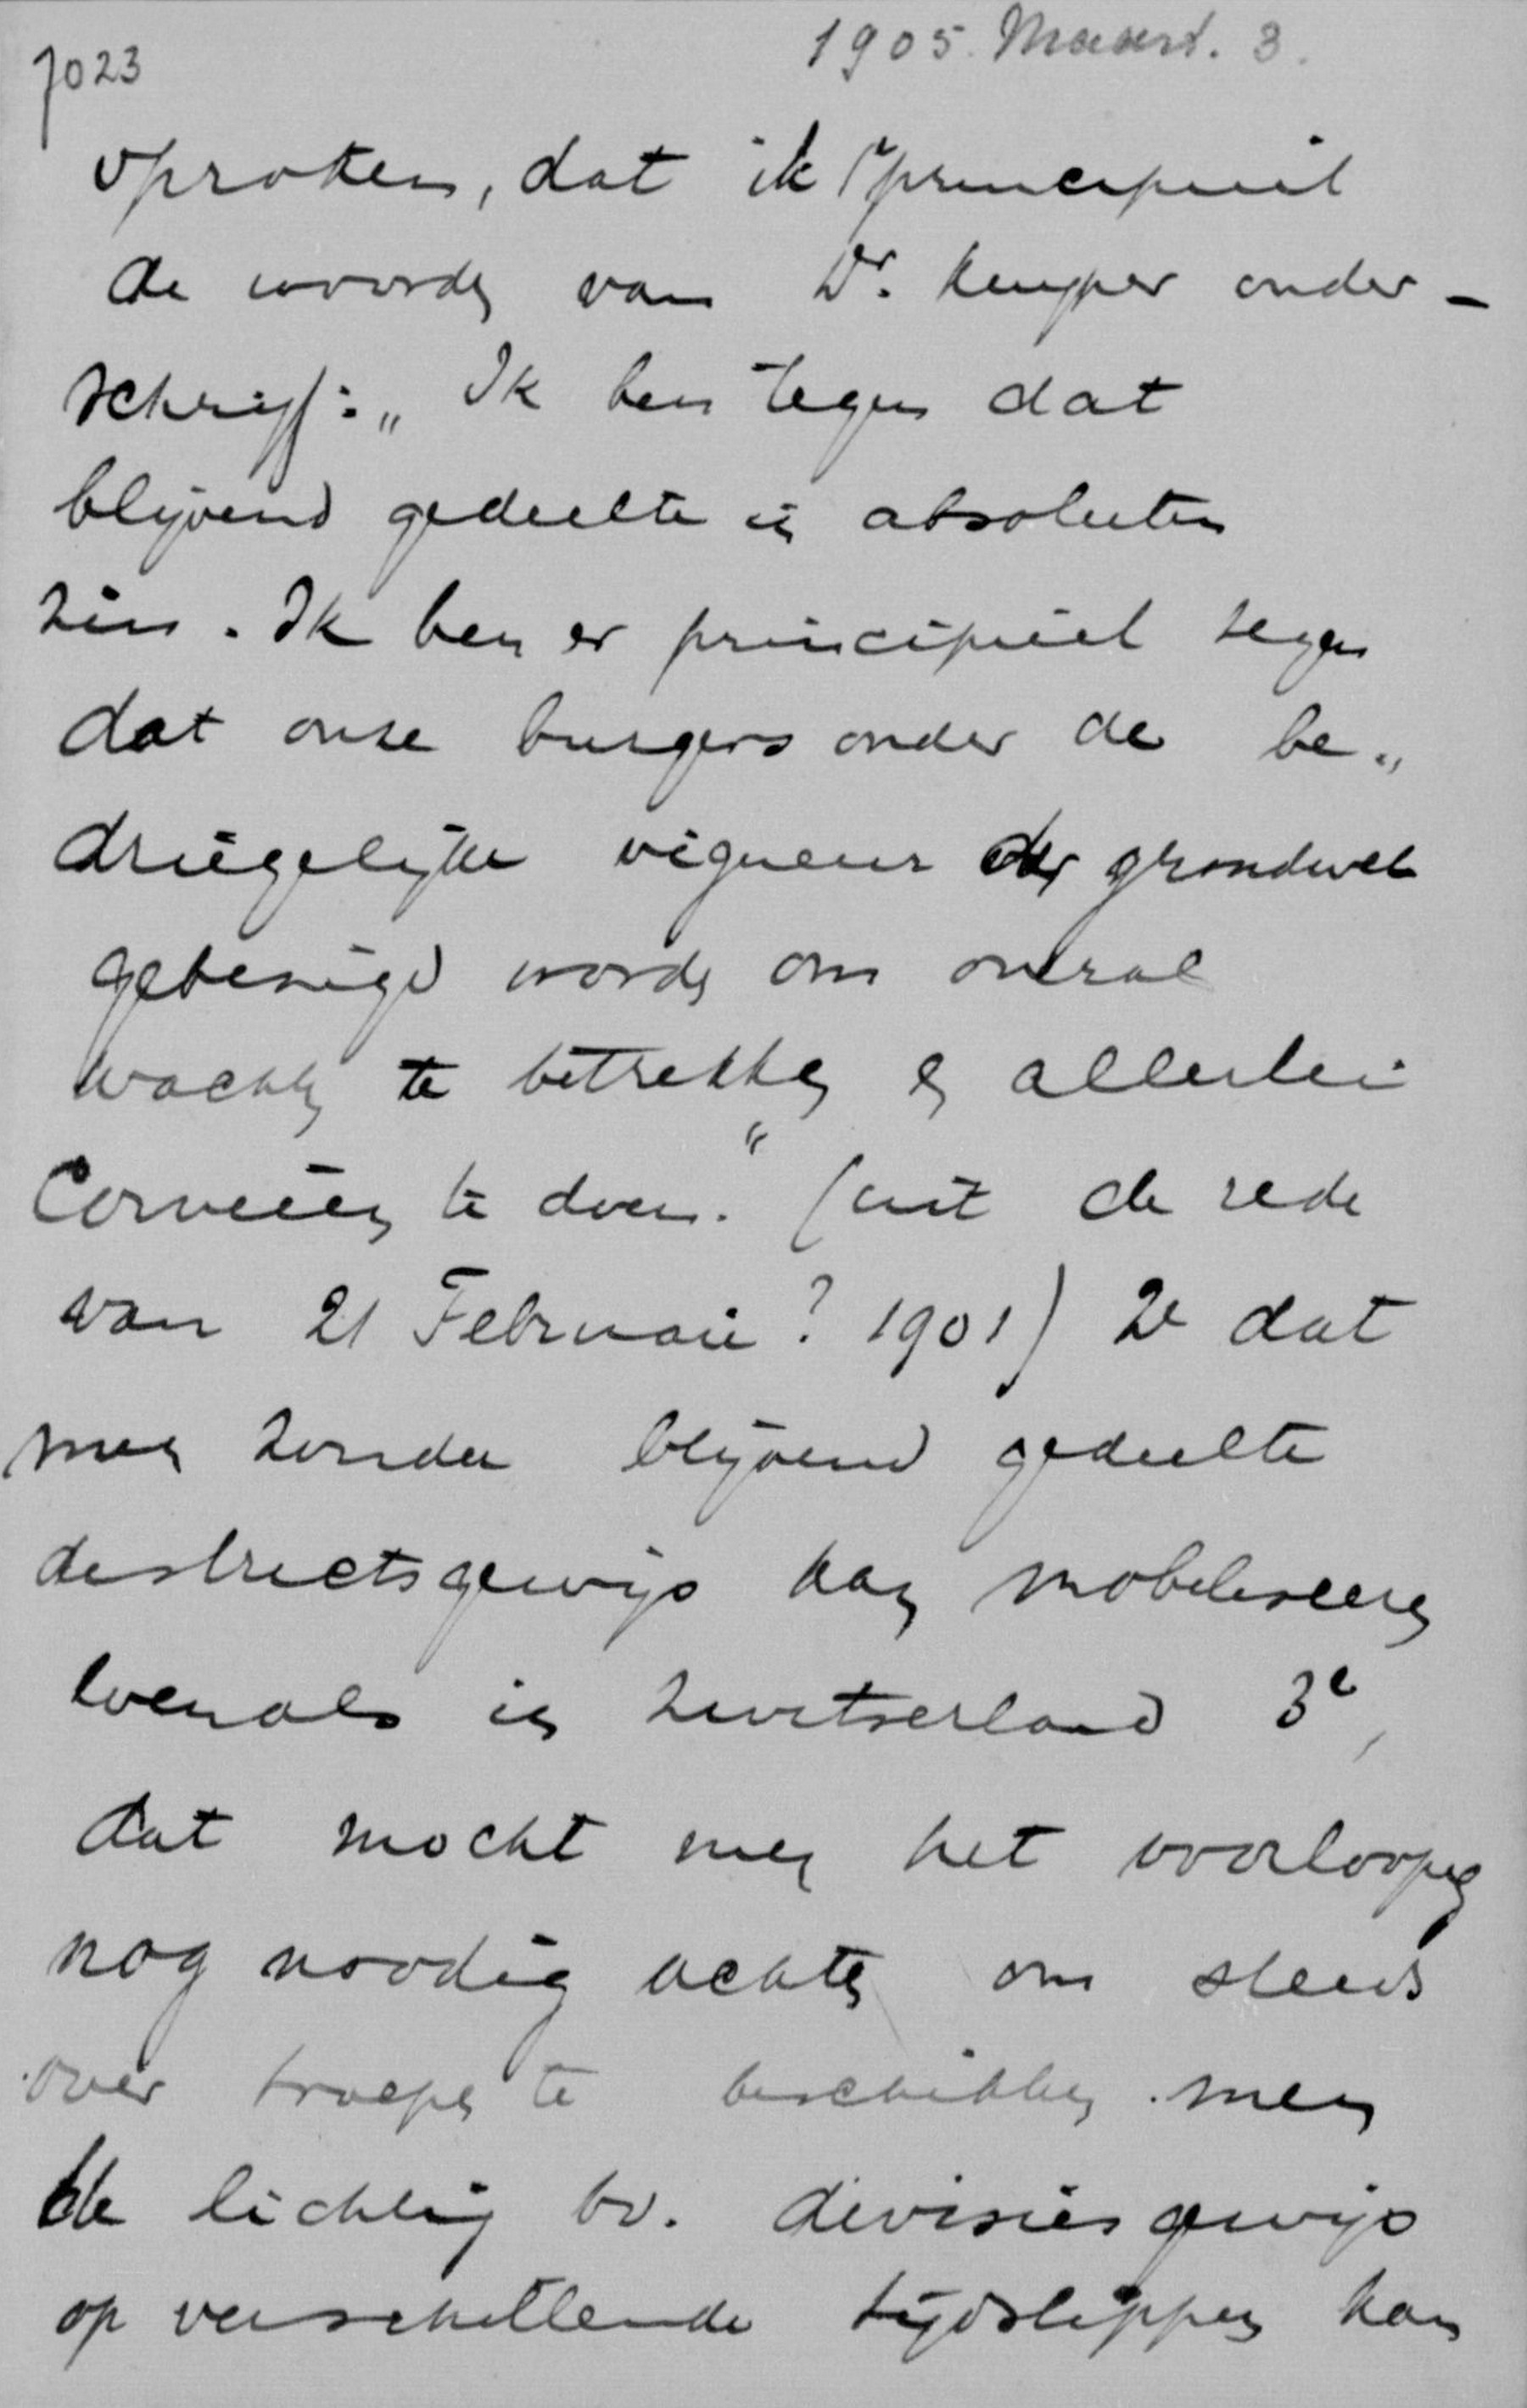 7023
1905. Maart. 3.
sproken, dat ik 1e principieel
de woorden van Dr. Kuyper onder-
schrijf: „Ik ben tegen dat
blijvend gedeelte in absoluten
zin. Ik ben er principieel tegen
dat onze burgers onder de be„
driegelijke vigueur der grondwet
gebezigd worden om overal
wachten te betrekken en allerlei
Corveeën te doen." (uit de rede
van 21 Februari? 1901) 2e dat
men zonder blijvend gedeelte
districtsgewijs kan mobiliseeren
evenals in Zwitserland 3e,
dat mocht men het voorloopig
nog noodig achten om steeds
over troepen te beschikken men
de lichting bv. divisiesgewijs
op verschillende tijdstippen kan